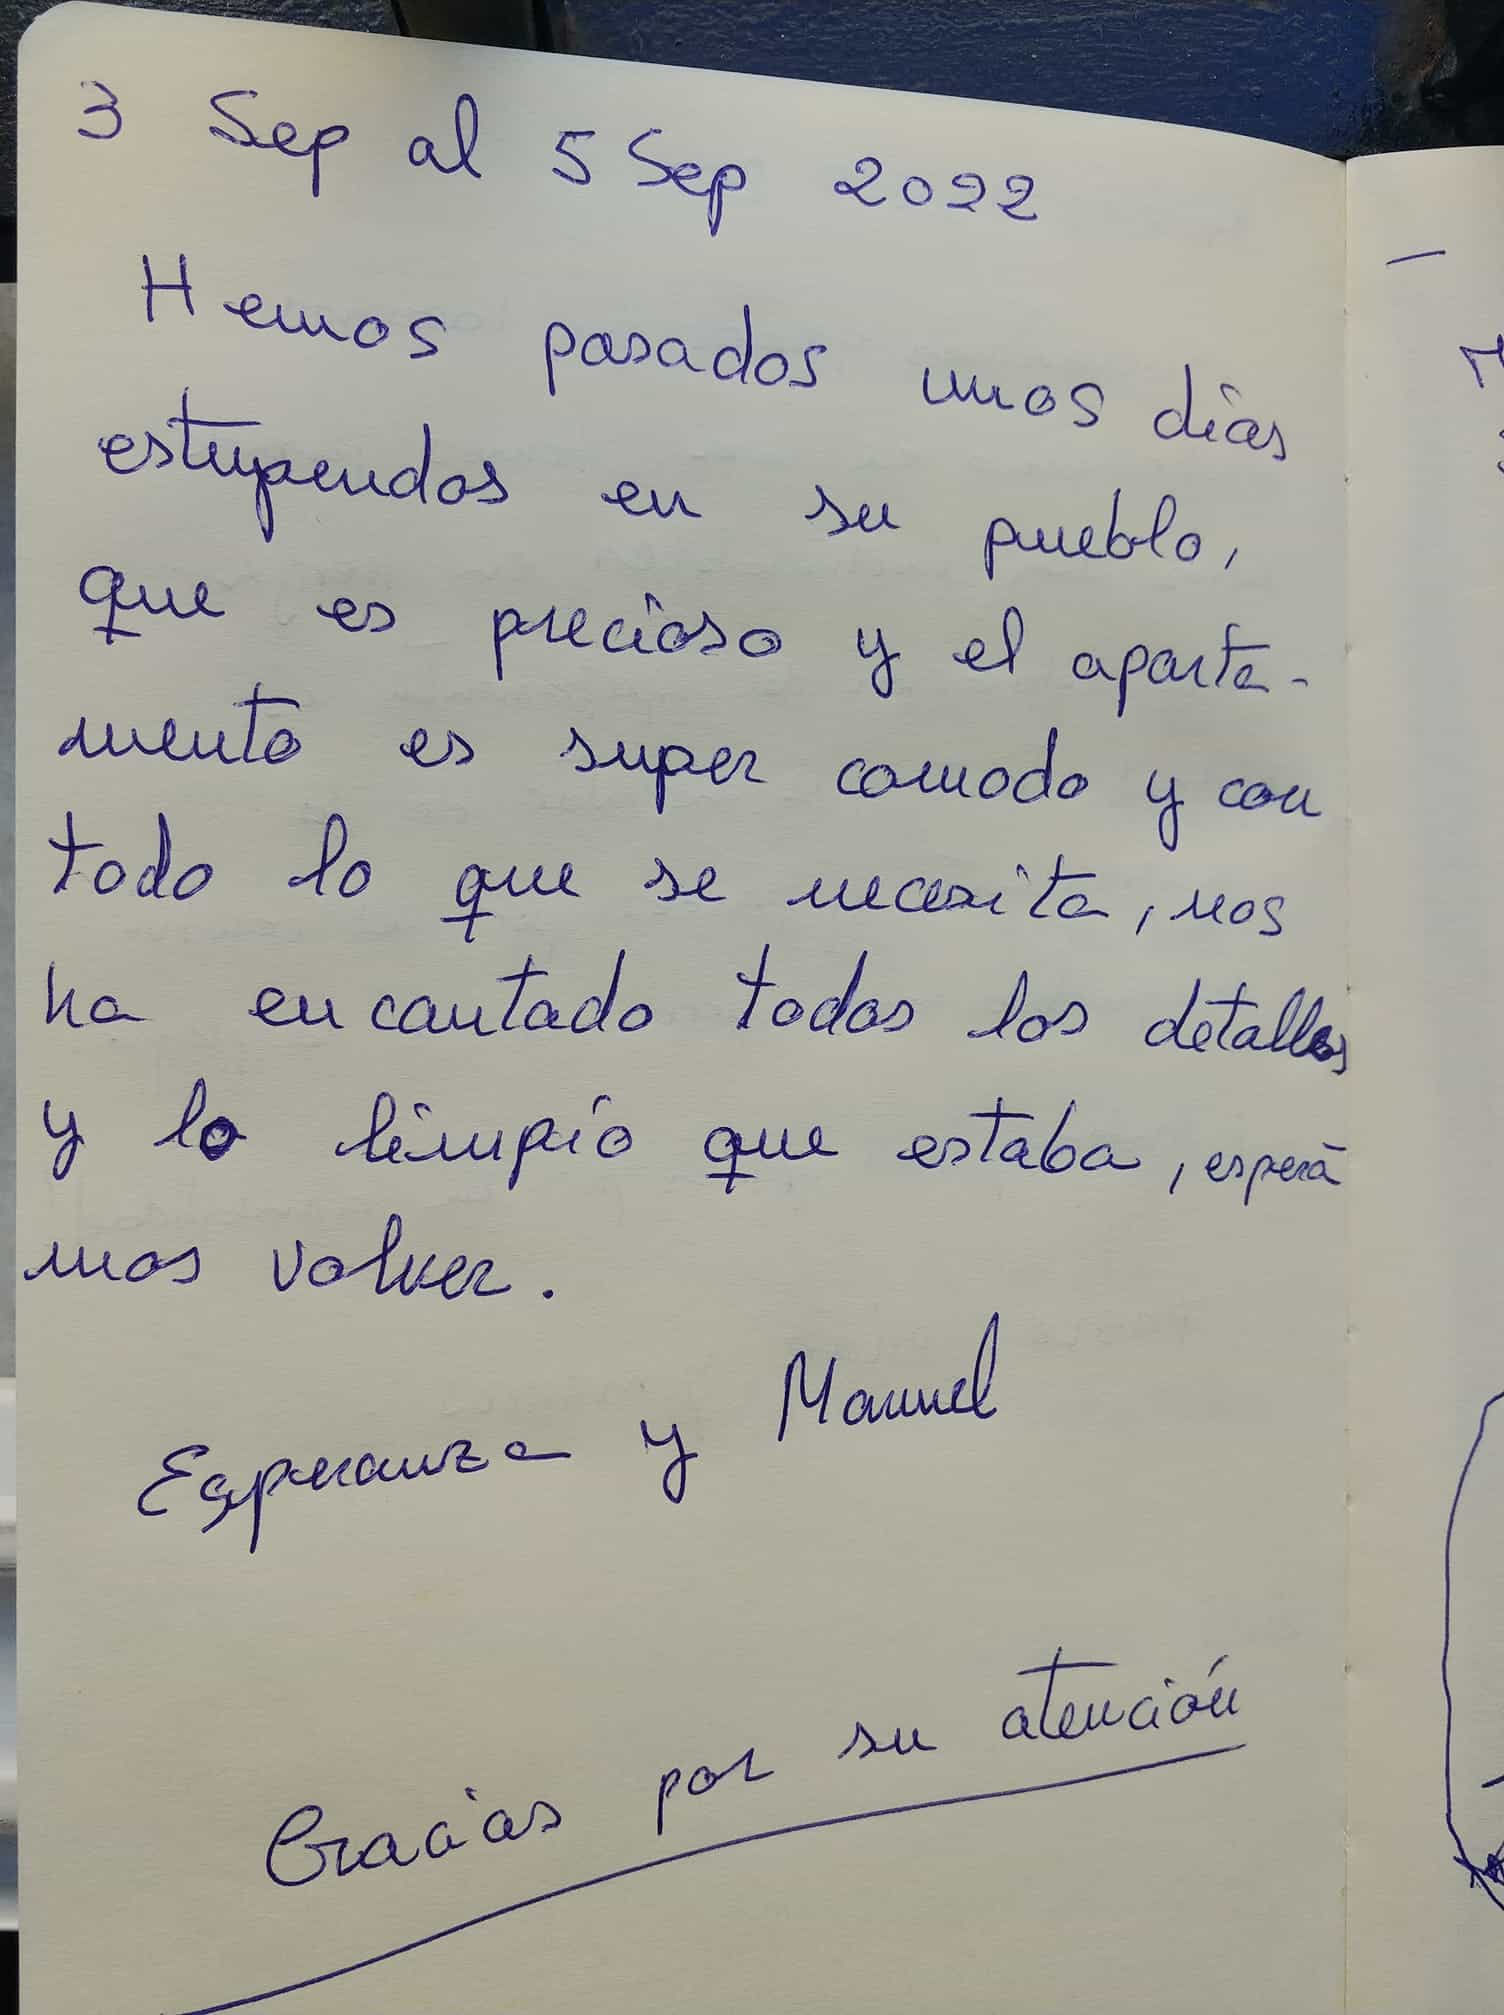 3 Sep al 5 Sep 2022
Hemos pasados unos días
estupendos en su pueblo,
que es precioso y el aparta-
mento es super comodo y con
todo lo que se necesita, nos
ha encantado todos los detalles
y lo limpio que estaba, espera
mos volver.
Esperanza y Manuel
Gracias por su atención